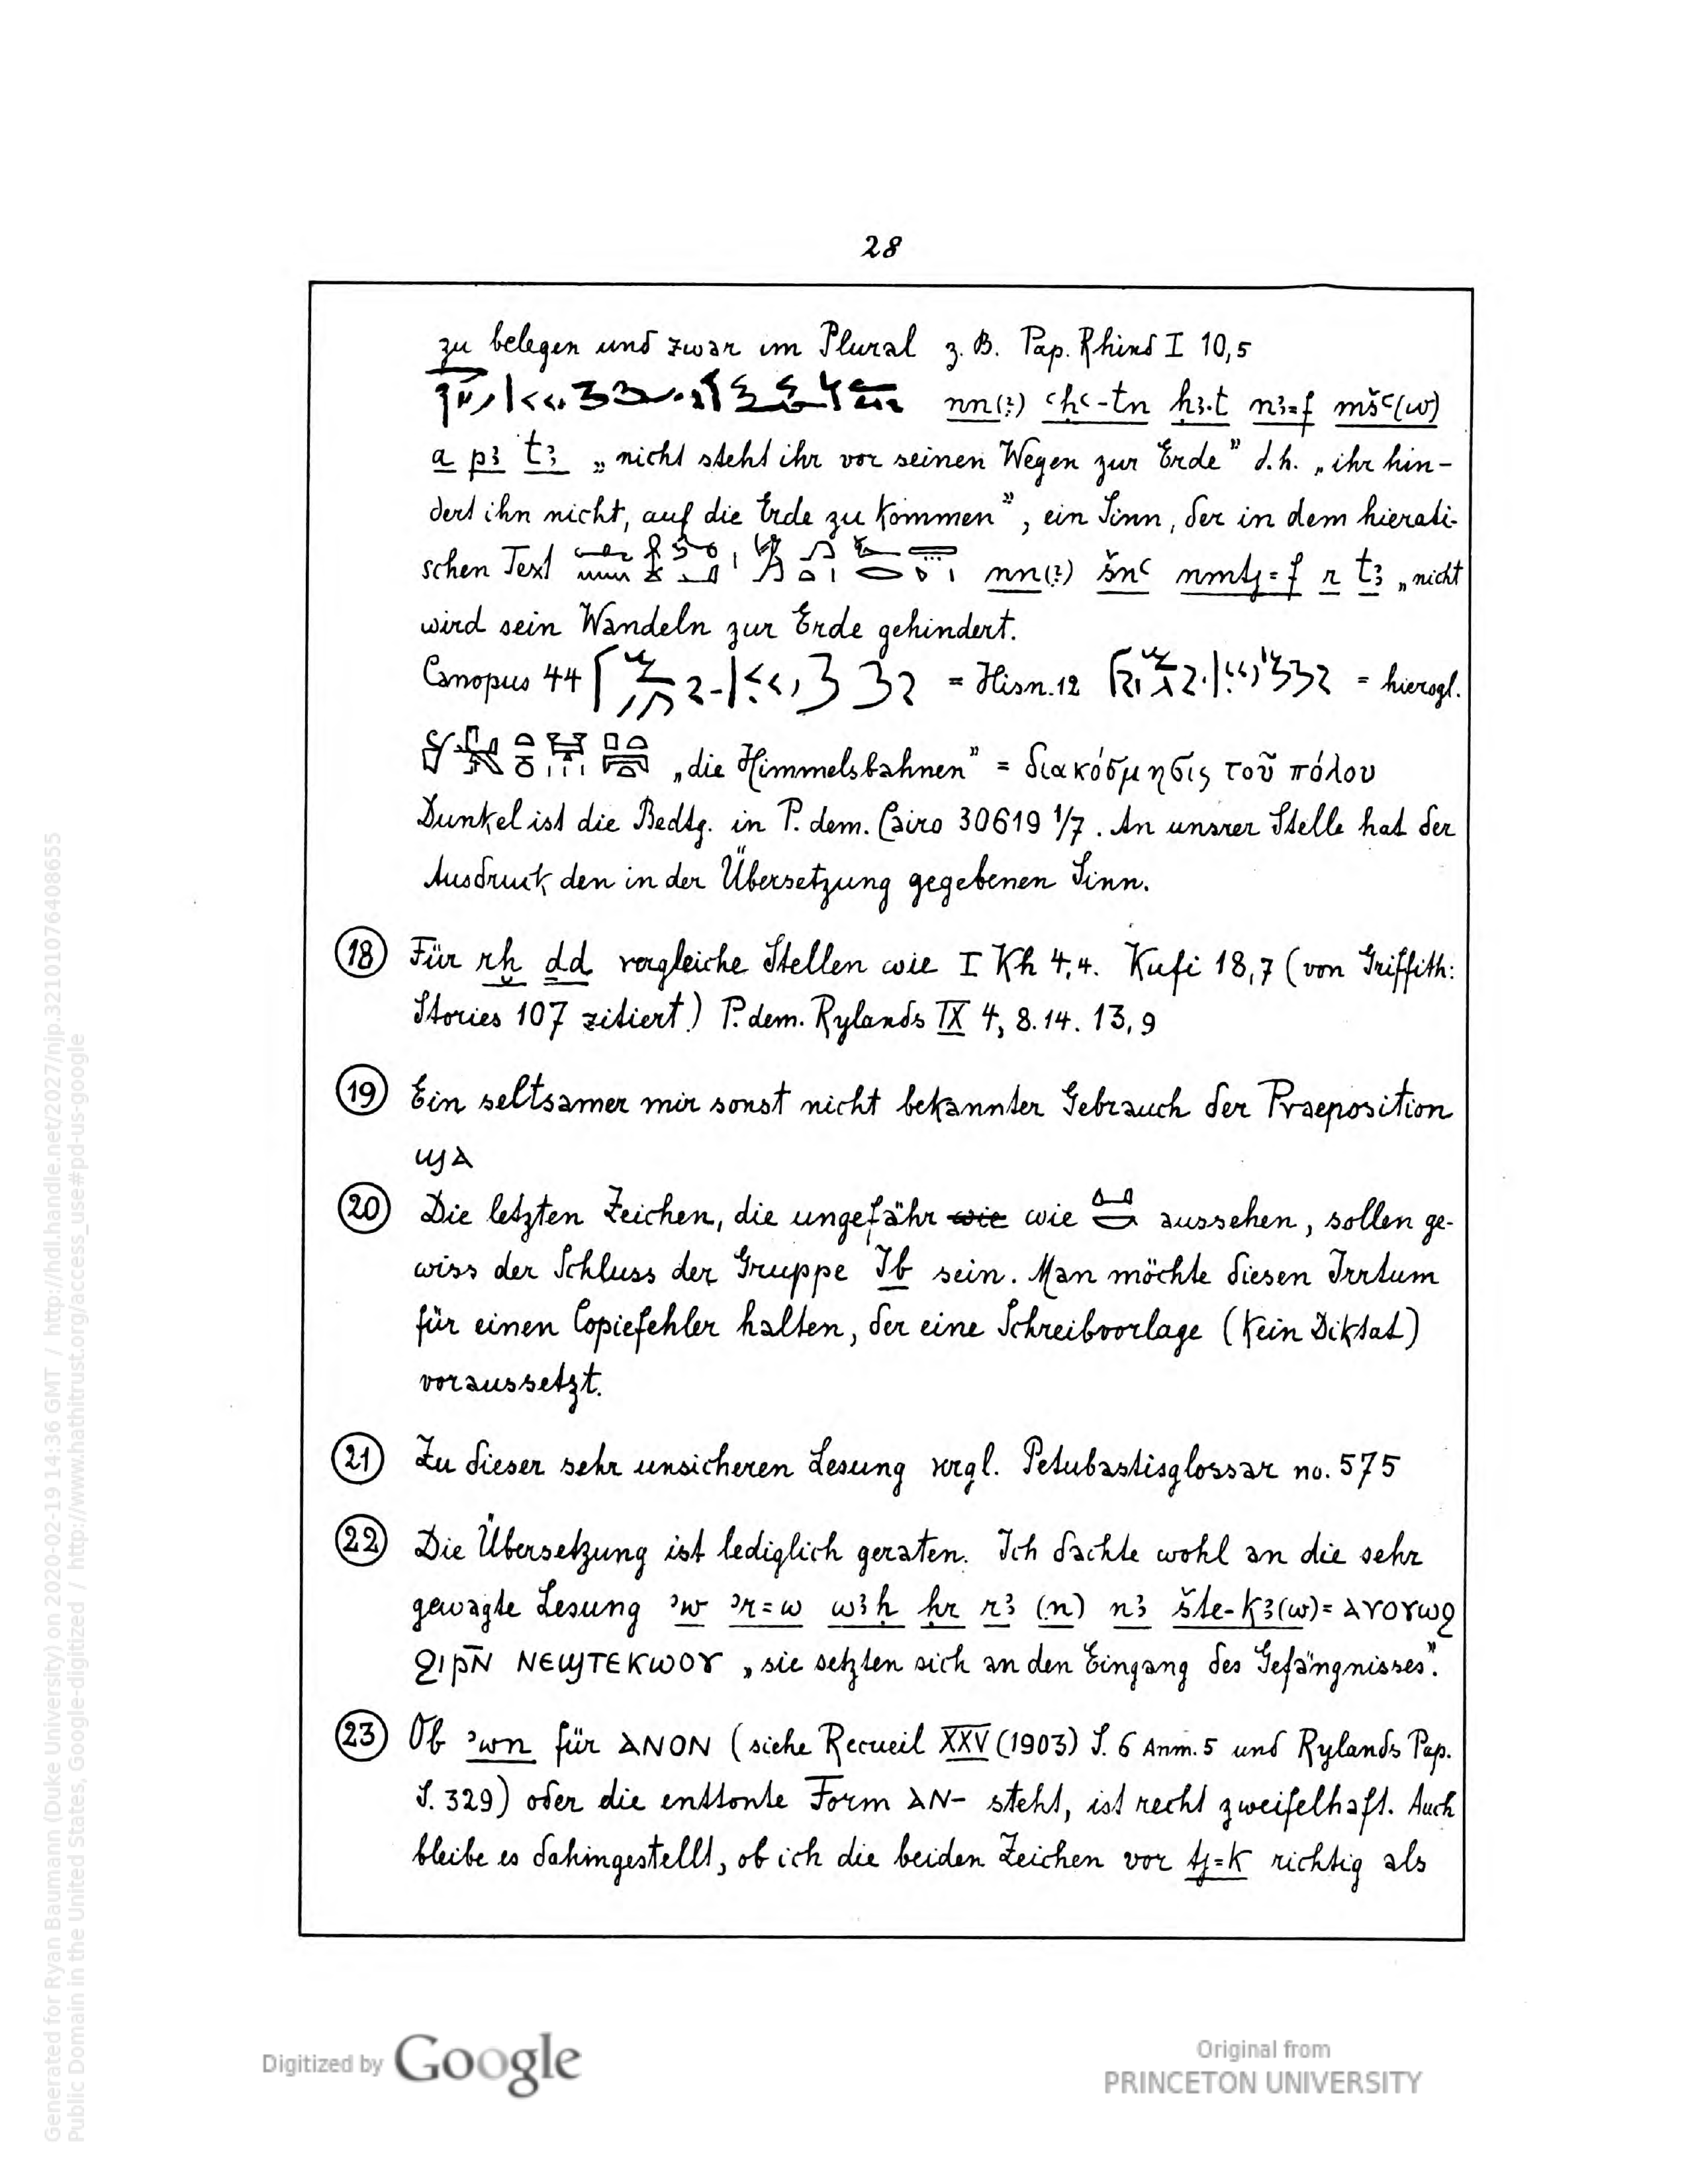 28
zu belegen und zwar im Plural z. B. Pap. Rhind I 10,5
nn(?) ꜥḥꜥ-tn ḥꜣ.t nꜣ=f mšꜥ(w)
a pꜣ tꜣ „nicht steht ihr vor seinen Wegen zur Erde" d.h. „ihr hin-
dert ihn nicht, auf die Erde zu kommen", ein Sinn, der in dem hierati-
schen Text nn(?) šnꜥ nmtj=f r tꜣ „nicht
wird sein Wandeln zur Erde gehindert.
Canopus 44 = Hisn. 12 = hierogl.
„die Himmelsbahnen" = διακόσμησις τοῦ πόλου
Dunkel ist die Bedtg. in P. dem. Cairo 30619 1/7. An unsrer Stelle hat der
Ausdruck den in der Übersetzung gegebenen Sinn.
(18) Für rḫ ḏd vergleiche Stellen wie I Kh 4,4. Kufi 18,7 (von Griffith:
Stories 107 zitiert) P. dem. Rylands IX 4, 8. 14. 13, 9
(19) Ein seltsamer mir sonst nicht bekannter Gebrauch der Praeposition
ϣⲁ
(20) Die letzten Zeichen, die ungefähr wie wie aussehen, sollen ge-
wiss der Schluss der Gruppe ꜣb sein. Man möchte diesen Irrtum
für einen Copiefehler halten, der eine Schreibvorlage (kein Diktat)
voraussetzt.
(21) Zu dieser sehr unsicheren Lesung vrgl. Petubastisglossar no. 575
(22) Die Übersetzung ist lediglich geraten. Ich dachte wohl an die sehr
gewagte Lesung ʾw ʾr=w wꜣḥ ḥr rꜣ (n) nꜣ šte-kꜣ(w) = ⲁⲩⲟⲩⲱϩ
ϩⲓⲣⲛ̄ ⲛⲉϣⲧⲉⲕⲱⲟⲩ „sie setzten sich an den Eingang des Gefängnisses".
(23) Ob ʾwn für ⲁⲛⲟⲛ (siehe Recueil XXV (1903) S. 6 Anm. 5 und Rylands Pap.
S. 329) oder die enttonte Form ⲁⲛ- steht, ist recht zweifelhaft. Auch
bleibe es dahingestellt, ob ich die beiden Zeichen vor tj=k richtig als
Digitized by Google
Original from
PRINCETON UNIVERSITY
Generated for Ryan Baumann (Duke University) on 2020-02-19 14:36 GMT / http://hdl.handle.net/2027/njp.32101076408655
Public Domain in the United States, Google-digitized / http://www.hathitrust.org/access_use#pd-us-google